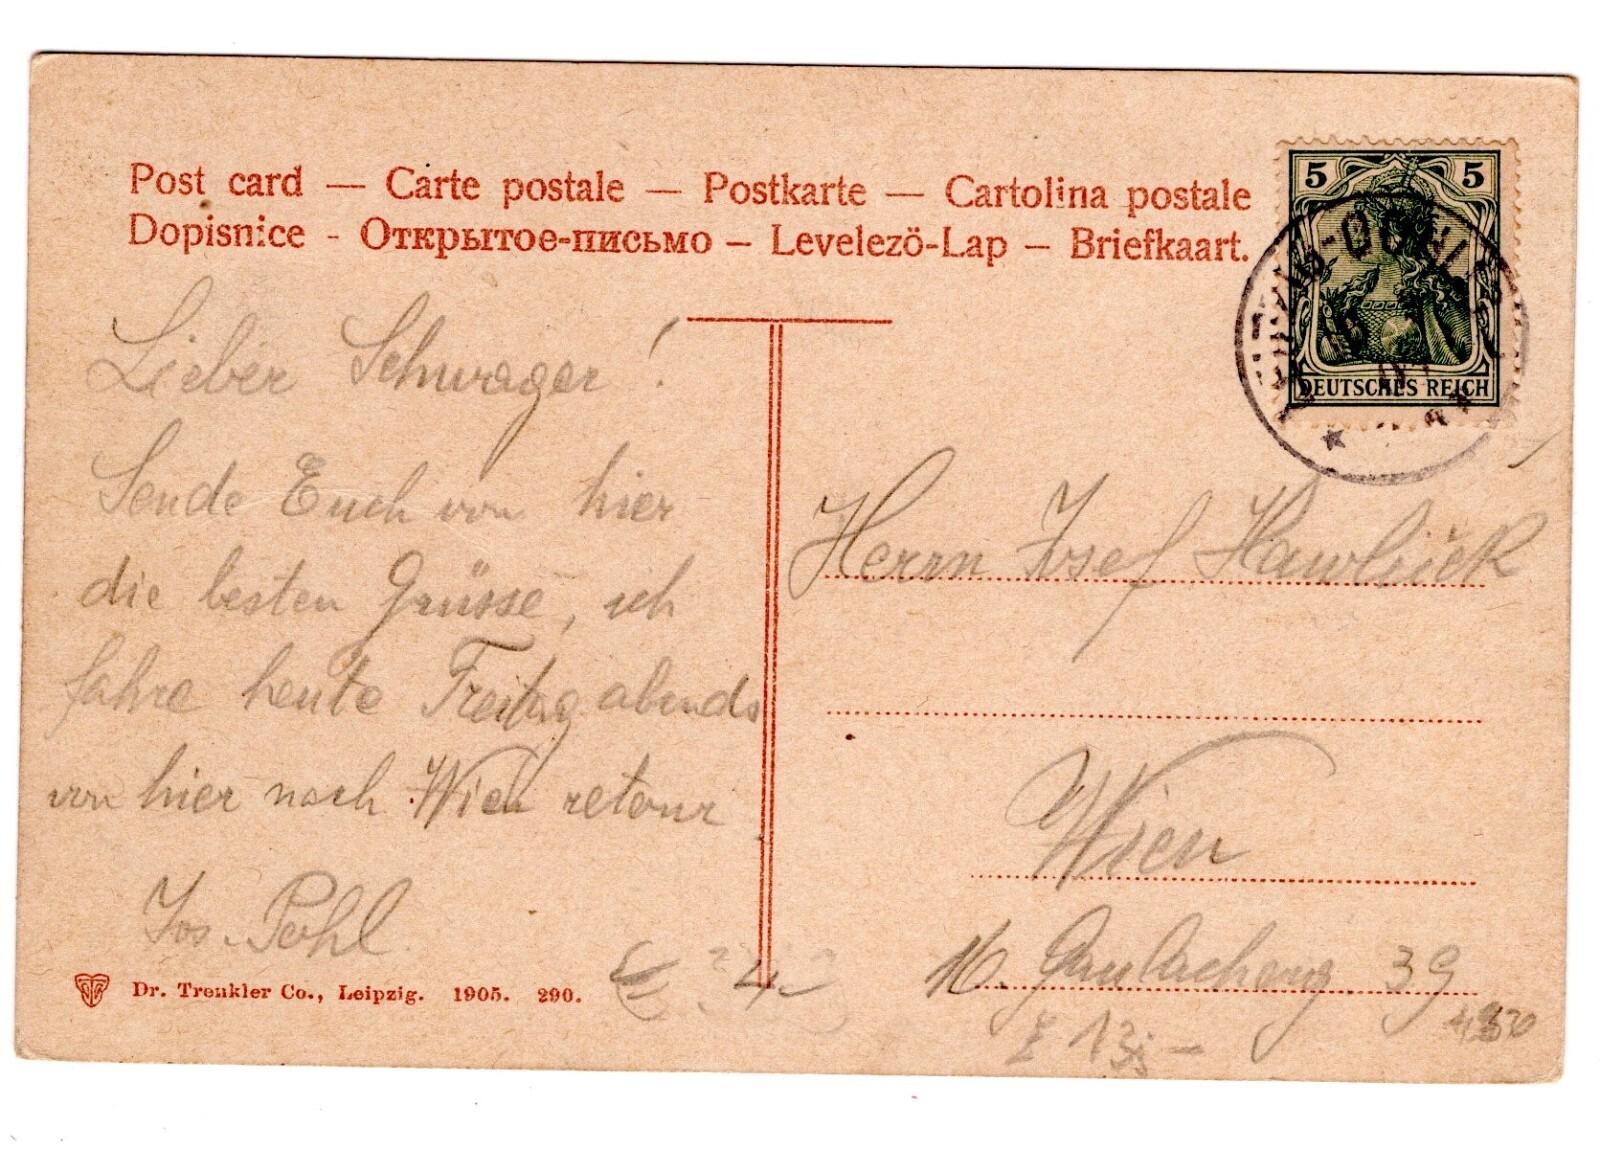 Post card — Carte postale — Postkarte — Cartolina postale
Dopisnice - Открытое-письмо – Levelezö-Lap – Briefkaart.
5 5
DEUTSCHES REICH
Lieber Schwager!
Sende Euch von hier
die besten Grüsse, ich
fahre heute Freitag abends
von hier nach Wien retour.
Jos. Pohl.
Herrn Josef Hawliček
Wien
39
Dr. Trenkler Co., Leipzig. 1905. 290.